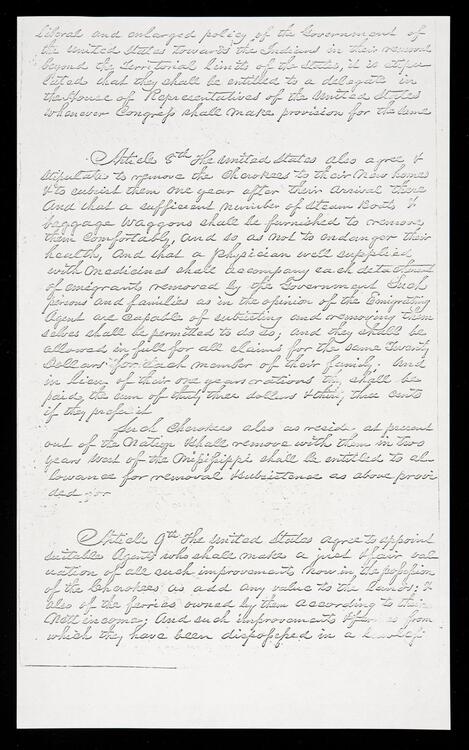 liberal and enlarged policy of the Government of
the United States towards the Indians in their removal
beyond the Territorial Limits of the States, it is stipu
lated that they shall be entitled to a delegate in
the House of Representatives of the United States
whenever Congress shall make provision for the same
Article 8th The United States also agree &
stipulate to remove the Cherokees to their New homes
& to subsist them one year after their arrival there
And that a sufficient number of Steam Boats &
baggage Waggons shall be furnished to remove
them Comfortably, And so, as not to endanger their
health, And that a Physician well supplied
with Medicines shall accompany each detachment
of emigrants removed by the Government Such
persons and families as in the opinion of the Emigrating
Agent are Capable of subsisting and removing them
selves shall be permitted to do so; and they shall be
allowed in full for all claims for the same Twenty
Dollars for each member of their family. And
in lieu of their one years rations they shall be
paid, the sum of thirty three dollars & thirty three Cents
if they prefer it
Such Cherokees also as reside at present
out of the Nation & shall remove with them in two
years West of the Missisippi shall be entitled to al
lowance for removal & subsistence as above provi
ded for
Article 9th The United States agree to appoint
suitable Agents who shall make a just & fair val
uation of all such improvements Now in the possession
of the Cherokees as add any value to the lands; &
also of the ferries owned by them according to their
Nett income; And such improvements & ferries from
which they have been dispossessed in a lawless